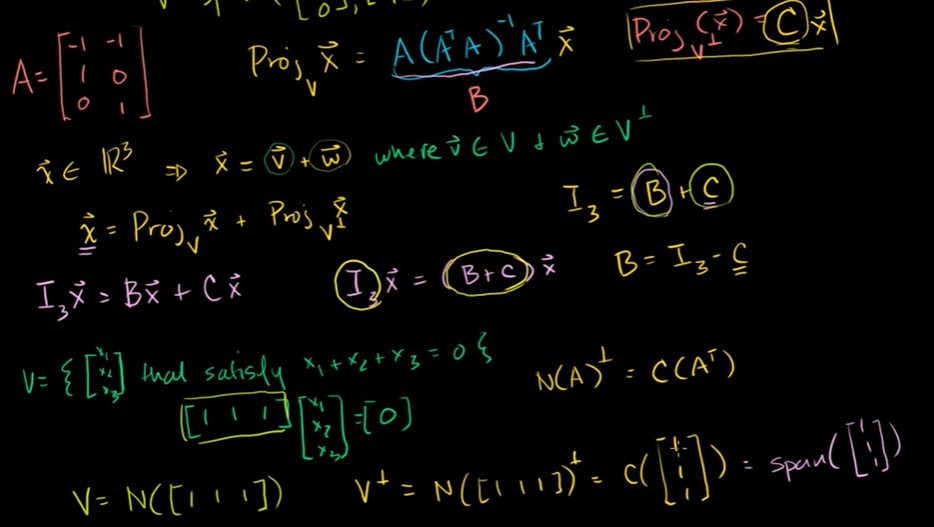 A = [-1 -1; 1 0; 0 1]
Proj_V x⃗ = A(AᵀA)⁻¹Aᵀ x⃗
B
Proj_V⊥(x⃗) = C x⃗
x⃗ ∈ ℝ³ ⇒ x⃗ = v⃗ + w⃗ where v⃗ ∈ V & w⃗ ∈ V⊥
x⃗ = Proj_V x⃗ + Proj_V⊥ x⃗
I₃ = B + C
I₃x⃗ = Bx⃗ + Cx⃗
I₃x⃗ = (B+C)x⃗
B = I₃ - C
V = { [x₁; x₂; x₃] that satisfy x₁ + x₂ + x₃ = 0 }
[1 1 1] [x₁; x₂; x₃] = [0]
N(A)⊥ = C(Aᵀ)
V = N([1 1 1])
V⊥ = N([1 1 1])⊥ = C([1; 1; 1]) = span([1; 1; 1])